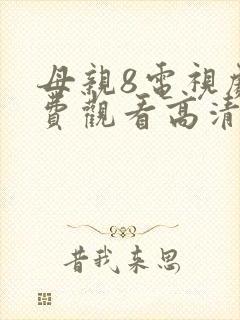 母親8電視
費觀看高清
昔我来思